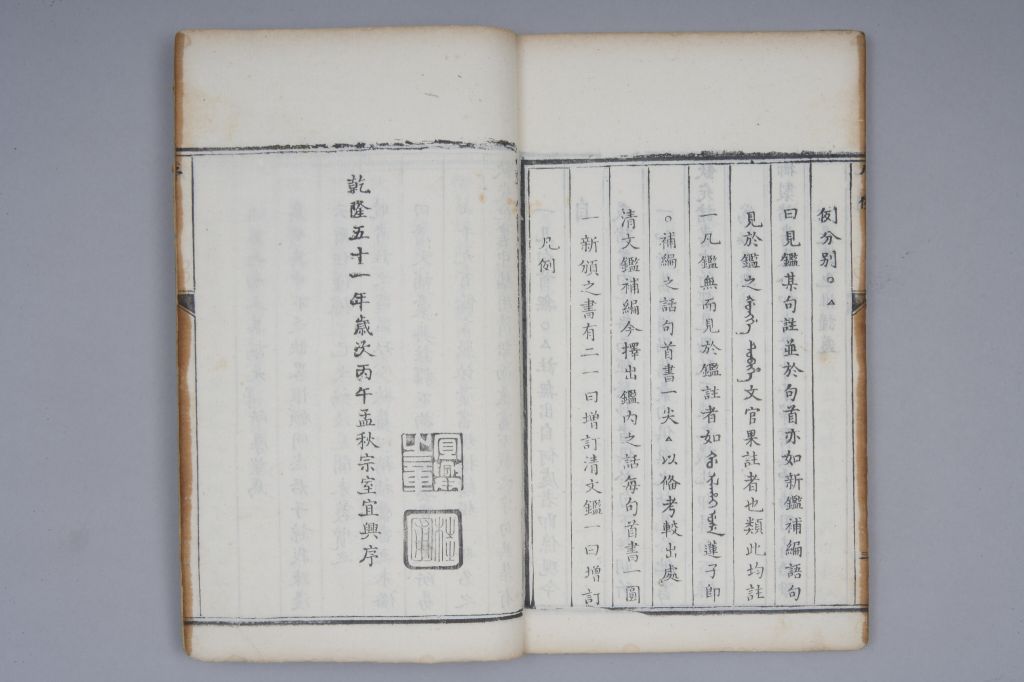 乾隆五十一年歲次丙午孟秋宗室宜興序
凡例
一新頒之書有二一曰增訂清文鑑一曰增訂
清文鑑補編今擇出鑑內之話每句首書一圈
○補編之話句首書一尖△以俻考較出處
一凡鑑無而見於鑑註者如蓮子即
見於鑑之文官果註者也類此均註
曰見鑑某句註並於句首亦如新鑑補編語句
例分别○△